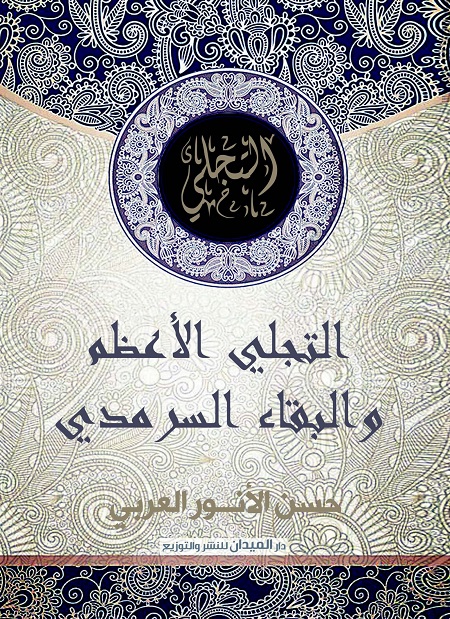 التجلي
التجلي الأعظم
والبقاء السرمدي
حسن الأنور العربي
دار الميدان للنشر والتوزيع